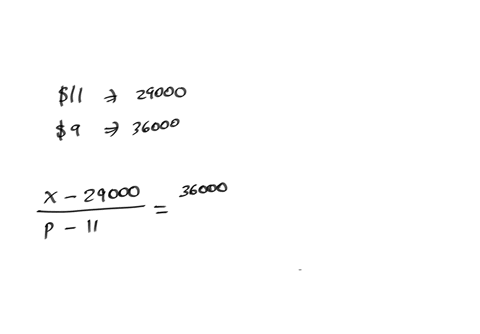 $11 → 29000
$9 → 36000
x - 29000 / p - 11 = 36000